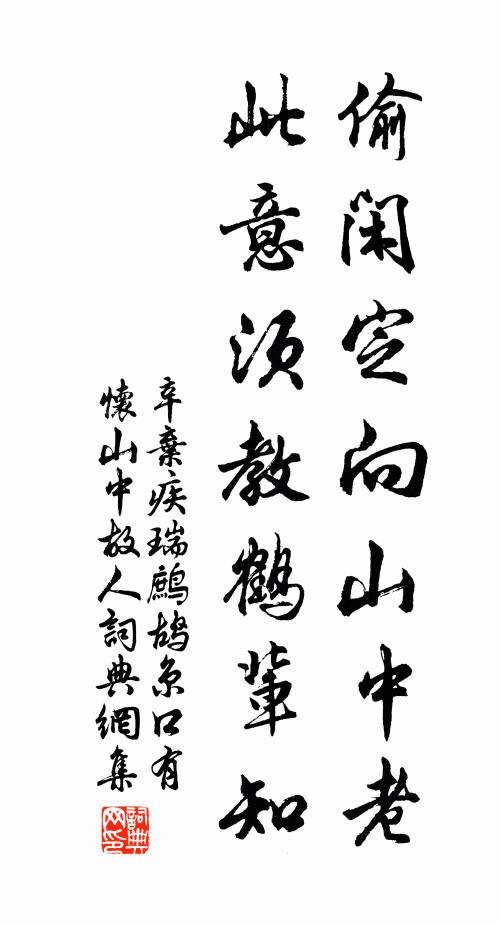 偷闲定向山中老
此意须教鹤辈知
辛棄疾瑞鷓鴣京口有
懷山中故人詞典網集
詞典
网印